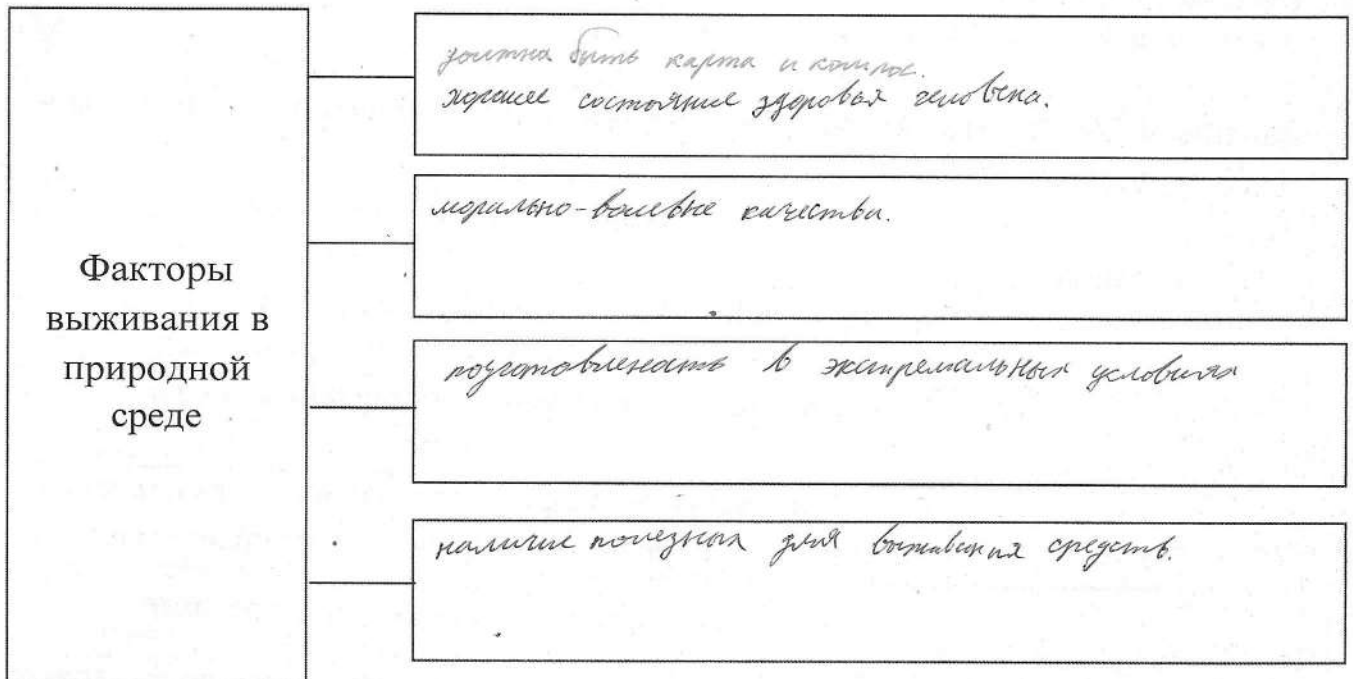 Факторы
выживания в
природной
среде
должна быть карта и компас.
хорошее состояние здоровья человека.
морально-волевые качества.
подготовленость в экстремальных условиях
наличие полезных для выживания средств.